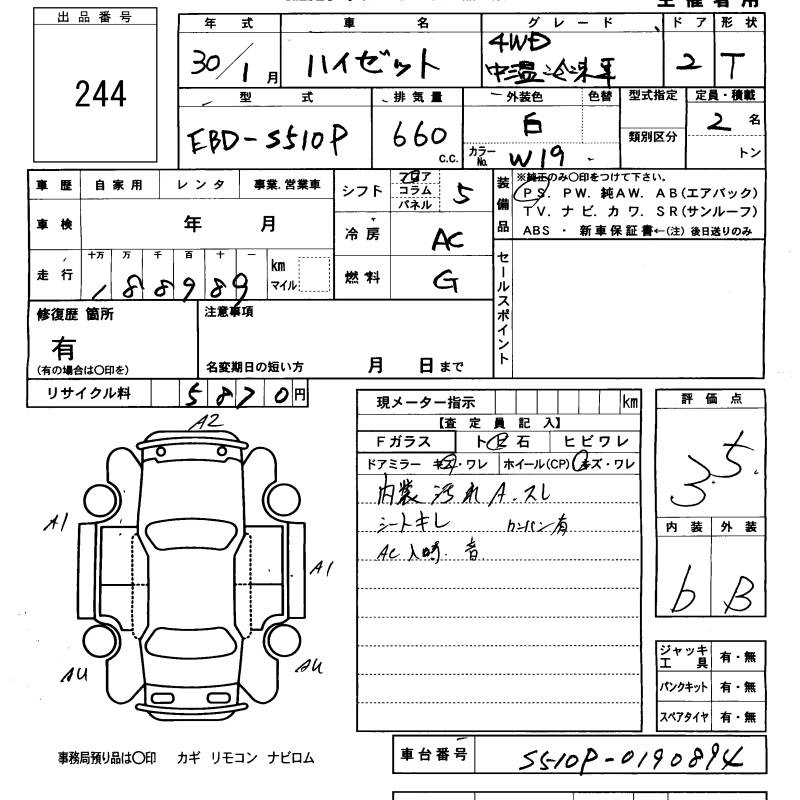 主催者用
出品番号
244
年式 車名 グレード ドア 形状
30/1月 ハイゼット 4WD 中温冷凍車 2 T
型式 排気量 外装色 色替 型式指定 定員・積載
EBD-S510P 660 c.c. 白 類別区分 2名
カラーNo. W19 トン
車歴 自家用 レンタ 事業.営業車 シフト フロア コラム パネル 5
車検 年 月 冷房 AC
走行 十万 万 千 百 十 一 km マイル
188989
燃料 G
装備品 ※純正のみ〇印をつけて下さい。
PS. PW. 純AW. AB(エアバック)
TV. ナビ. カワ. SR(サンルーフ)
ABS ・ 新車保証書←(注) 後日送りのみ
セールスポイント
修復歴 箇所 注意事項
有
(有の場合は〇印を) 名変期日の短い方 月 日まで
リサイクル料 5870円
現メーター指示 km
【査定員記入】
Fガラス ト日石 ヒビワレ
ドアミラー キズ・ワレ ホイール(CP) キズ・ワレ
内装汚れ A.スレ
シートキレ カンバン有
AC入時.音
評価点
3.5.
内装 外装
b B
A2
A1
A1
AU
AU
ジャッキ工具 有・無
パンクキット 有・無
スペアタイヤ 有・無
事務局預り品は〇印 カギ リモコン ナビロム
車台番号 S510P-0190894